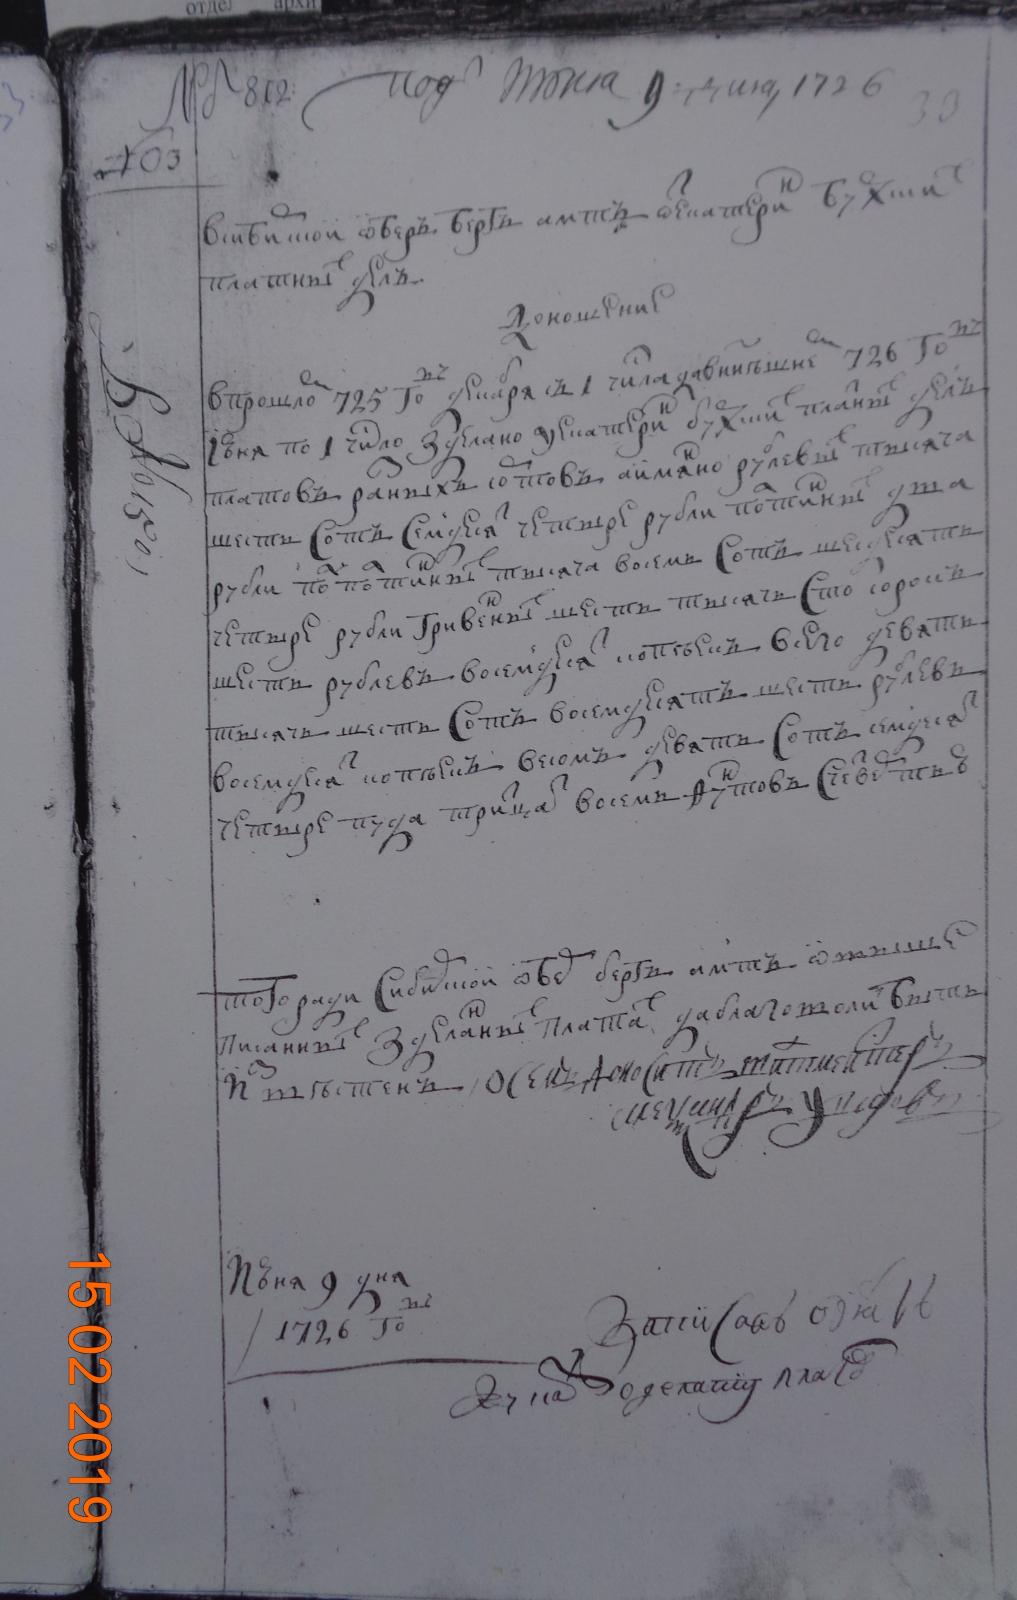 отдел архи
№ 812 под Июня 9 дня, 1726
33
403
всибирской обербергъ амтъ оекатерин бухских
платных делъ
Доношение
впрошлом 725 году декабря съ 1 числа давнынешнем 726 году
Июня по 1 число зделано уекатерин бухских платных делъ
платовъ разныхъ сортовъ аимянно рублевых тысяча
шесть сотъ семдесят четыре рубли полтинных два
рубли полуполтинных тысяча восемь сотъ шесдесятъ
четыре рубли гривенных шесть тысячъ сто сорокъ
шесть рублевъ восемдесят копеекъ всего девять
тысячъ шесть сотъ восемдесятъ шесть рублевъ
восемдесят копеекъ весомъ девять сотъ семдесят
четыре пуда тритцат восемь фунтовъ счетвертью
того ради сибирской обер бергъ амтъ овыше
писанных зделанных платах даблаговолит быть
известенъ, О семъ доноситъ
Июня 9 дня
1726 году
Записавъ